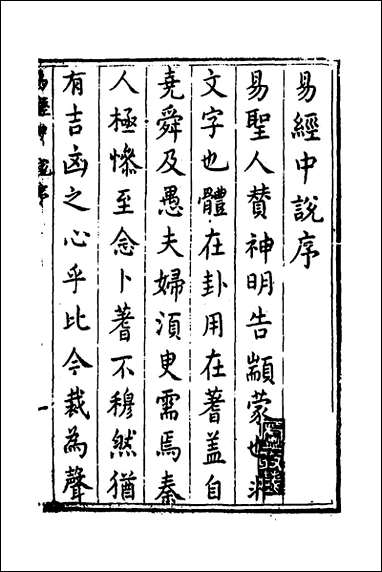 易經中說序
易聖人賛神明告顓蒙也非
文字也體在卦用在蓍蓋自
堯舜及愚夫婦湏臾需焉秦
人極慘至念卜蓍不穆然猶
有吉凶之心乎比今裁為聲
易經中說序
一